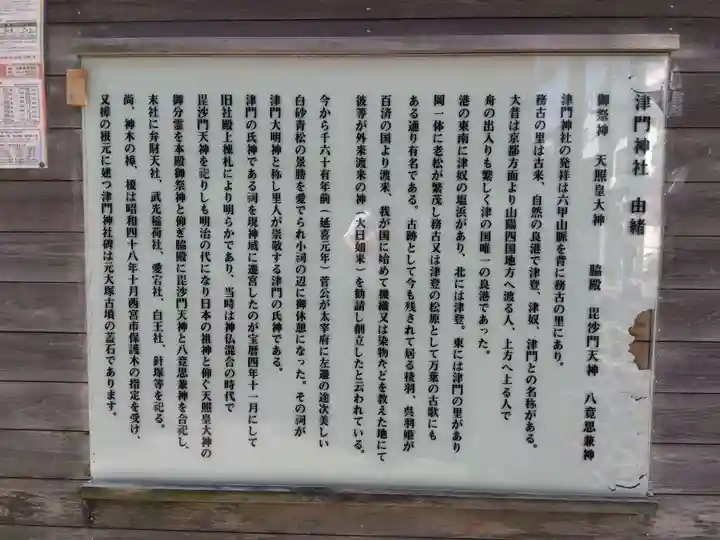 津門神社 由緒
御祭神 天照皇大神 脇殿 毘沙門天神 八意思兼神
津門神社の発祥は六甲山脈を背に務古の里にあり。
務古の里は古来、自然の良港で津登、津奴、津門との名称がある。
大昔は京都方面より山陽四国地方へ渡る人、上方へ上る人で
舟の出入りも繁しく津の国唯一の良港であった。
港の東南に津奴の塩浜があり、北には津登。東には津門の里があり
岡一体に老松が繁茂し務古又は津登の松原として万葉の古歌にも
ある通り有名である。古跡として今も残されて居る稜羽、呉羽姫が
百済の国より渡来、我が国に始めて機織又は染物などを教えた地にて
彼等が外来渡来の神(大日如来)を勧請し創立したと云われている。
今から千六十有年前(延喜元年)菅公が太宰府に左遷の途次美しい
白砂青松の景勝を愛でられ小祠の辺に御休憩になった。その祠が
津門大明神と称し里人が崇敬する津門の氏神である。
津門の氏神である祠を現神域に遷宮したのが宝暦四年十一月にして
旧社殿上棟札により明らかであり、当時は神仏混合の時代で
毘沙門天神を祀りしも明治の代になり日本の祖神と仰ぐ天照皇大神の
御分霊を本殿御祭神と仰ぎ脇殿に毘沙門天神と八意思兼神を合祀し、
末社に弁財天社、武光稲荷社、愛宕社、白王社、針塚等を祀る。
尚、神木の樟、榎は昭和四十八年十月西宮市保護木の指定を受け、
又樟の根元に建つ津門神社碑は元大塚古墳の蓋石であります。